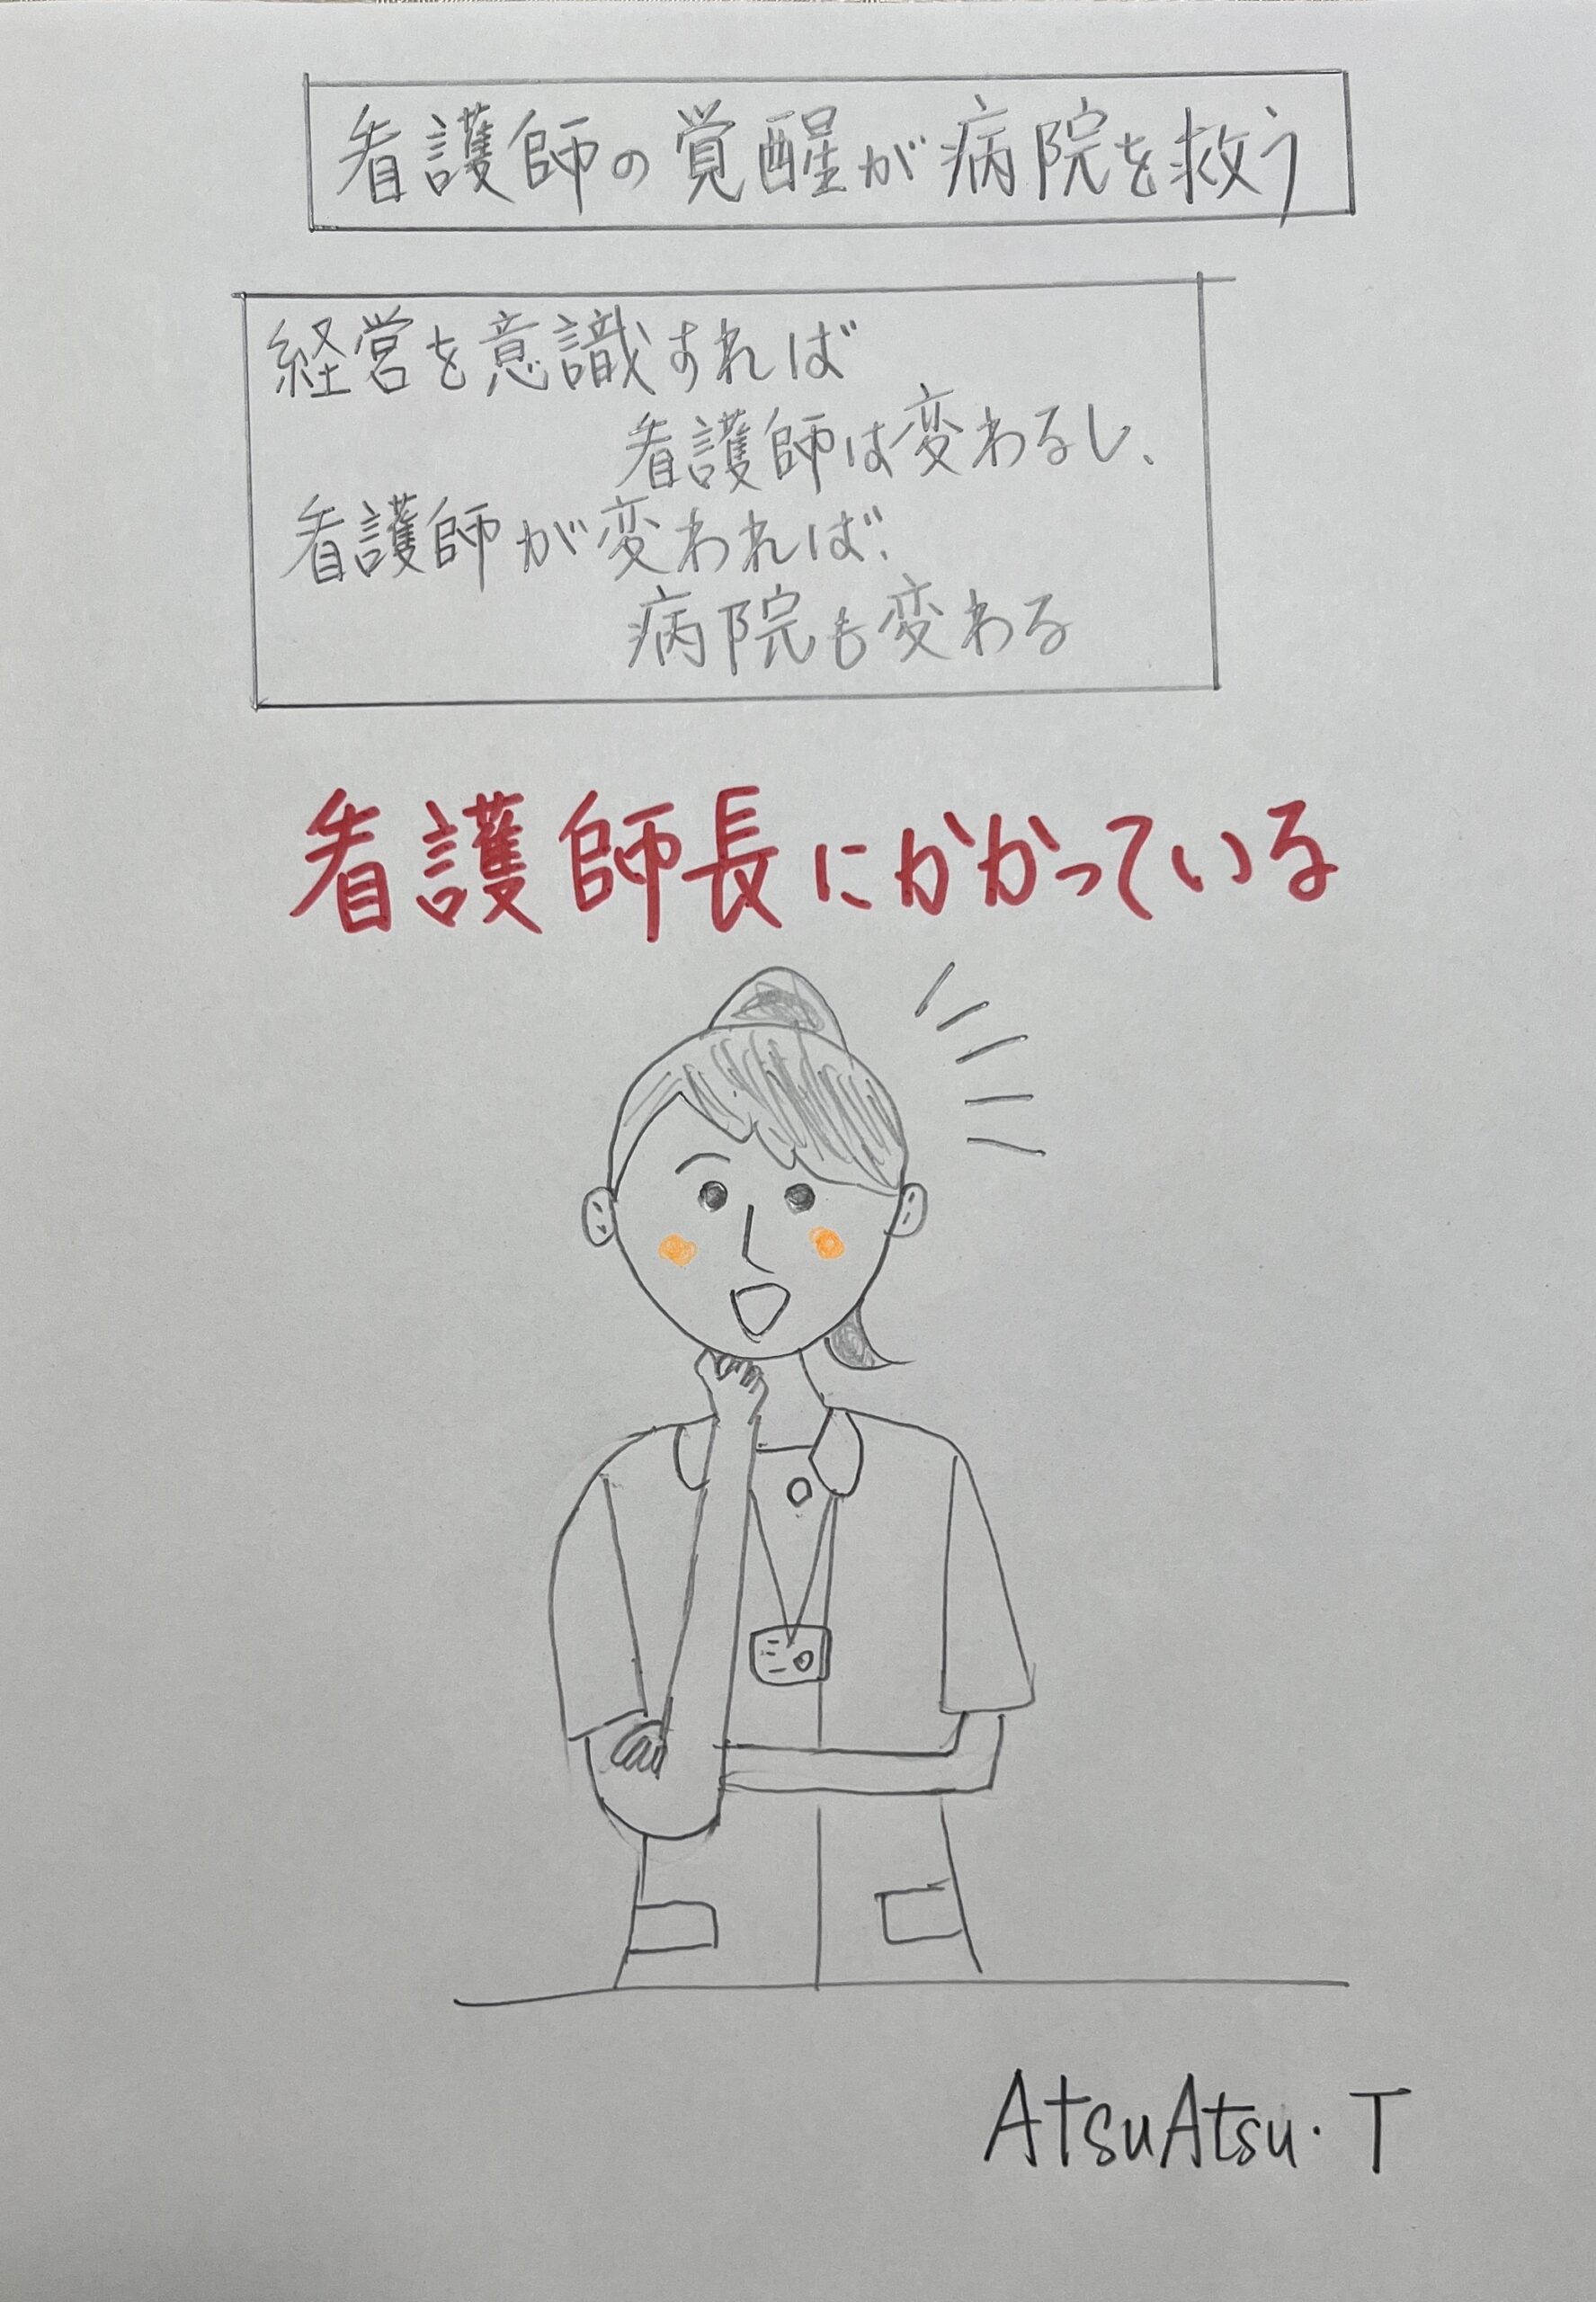 看護師の覚醒が病院を救う
経営を意識すれば
看護師は変わるし、
看護師が変われば、
病院も変わる
看護師長にかかっている
AtsuAtsu. T